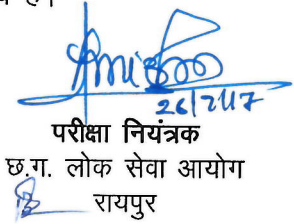 26/2/17
परीक्षा नियंत्रक
छ.ग. लोक सेवा आयोग
रायपुर